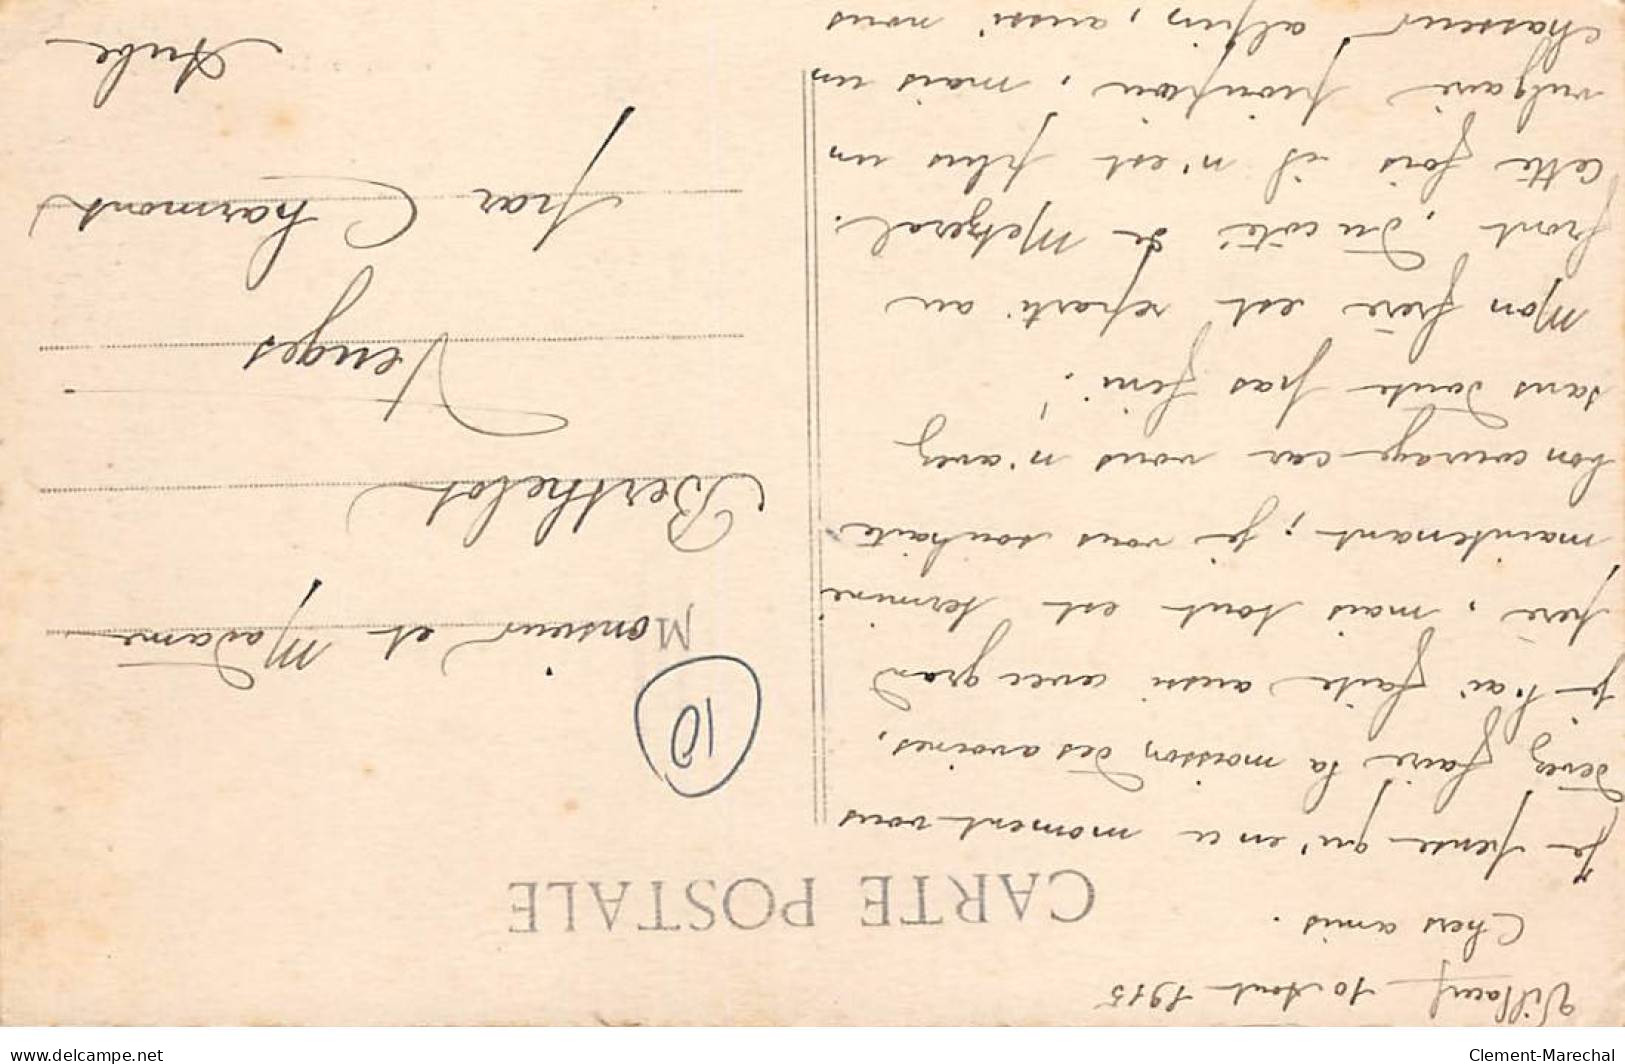 Villacerf 10 Aout 1915
Chers amis.
Je pense qu'en ce moment vous
devez faire la moisson des avoines,
je l'ai faite aussi avec grand
père, mais tout est terminé
maintenant; je vous souhaite
bon courage car vous n'avez
sans doute pas fini!
Mon frère est reparti au
front, du côté de Metzeral.
Cette fois il n'est plus un
vulgaire pioupiou, mais un
chasseur alpin, aussi nous
CARTE POSTALE
10
M
Monsieur et Madame
Berthelot
Venges
par Charmont
Aube
www.delcampe.net
Clement-Marechal